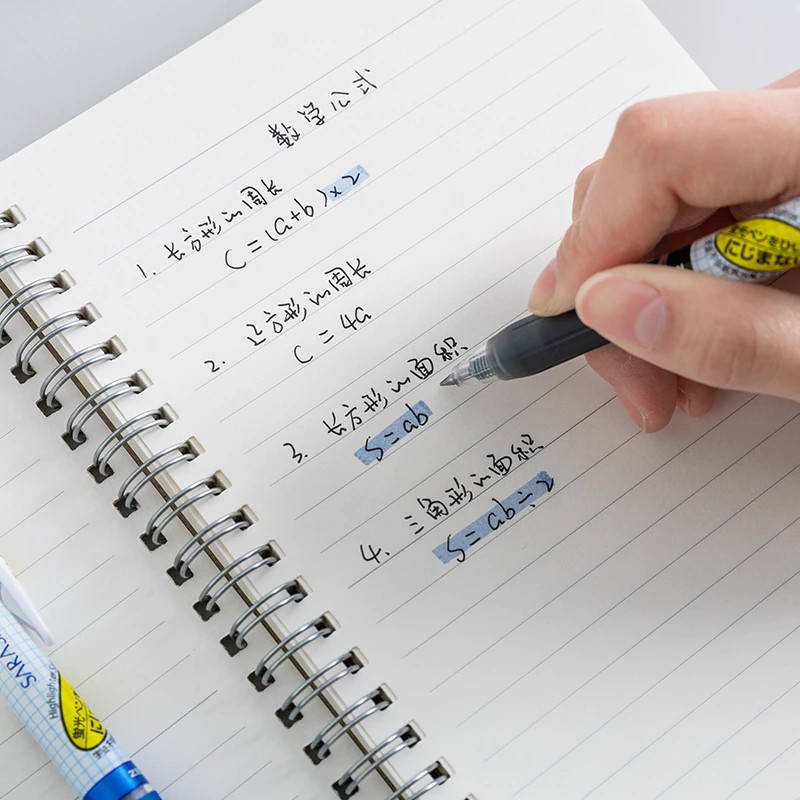 数学公式
1. 长方形的周长
C=(a+b)×2
2. 正方形的周长
C=4a
3. 长方形的面积
S=ab
4. 三角形的面积
S=ab÷2
蛍光ペンをひい
にじまない
SARAS
Highlighter
蛍光ペン
にじ